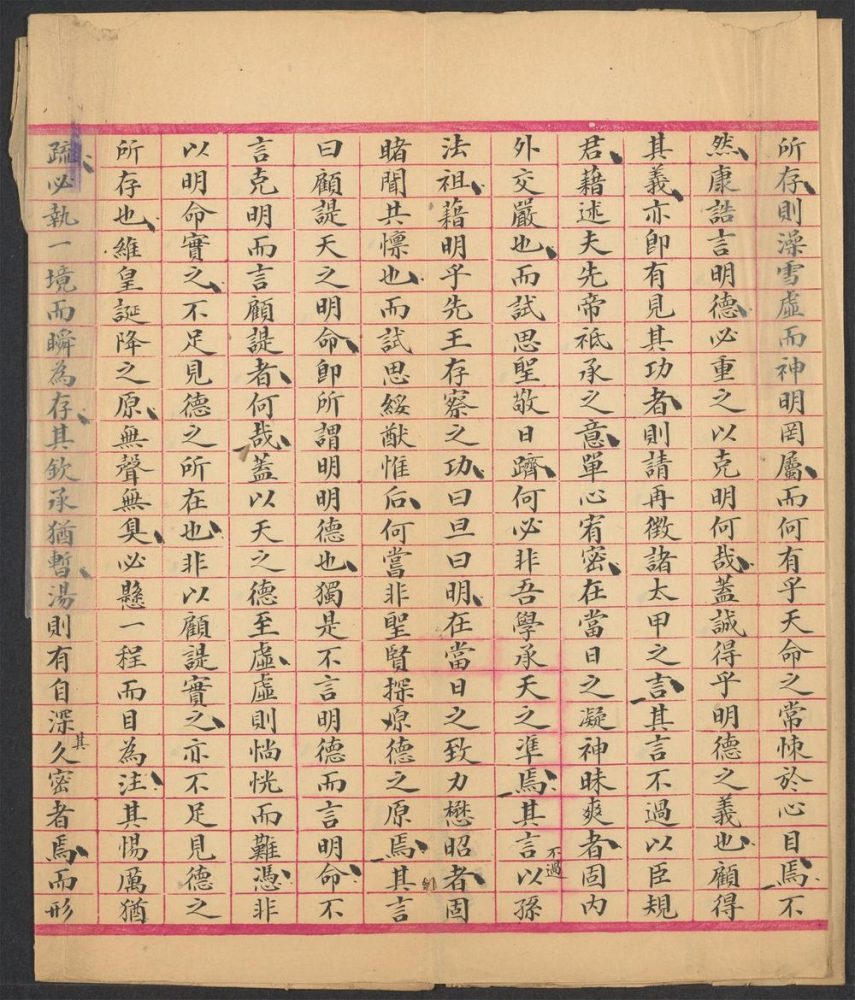 所存則澡雪虛而神明罔屬而何有乎天命之常悚於心目焉不
然康誥言明德必重之以克明何哉蓋誠得乎明德之義也顧得
其義亦即有見其功者則請再徵諸太甲之言其言不過以臣規
君藉述夫先帝祗承之意單心宥密在當日之凝神昧爽者固內
外交嚴也而試思聖敬日躋何必非吾學承天之準焉其言不過以孫
法祖藉明乎先王存察之功曰旦曰明在當日之致力懋昭者固
睹聞共懍也而試思綏猷惟后何嘗非聖賢探原德之原焉其言
曰顧諟天之明命即所謂明明德也獨是不言明德而言明命不
言克明而言顧諟者何哉蓋以天之德至虛虛則惝恍而難憑非
以明命實之不足見德之所在也非以顧諟實之亦不足見德之
所存也維皇誕降之原無聲無臭必懸一程而目為注其惕厲猶
疏必執一境而瞬為存其欽承猶暫湯則有自深其久密者焉而形